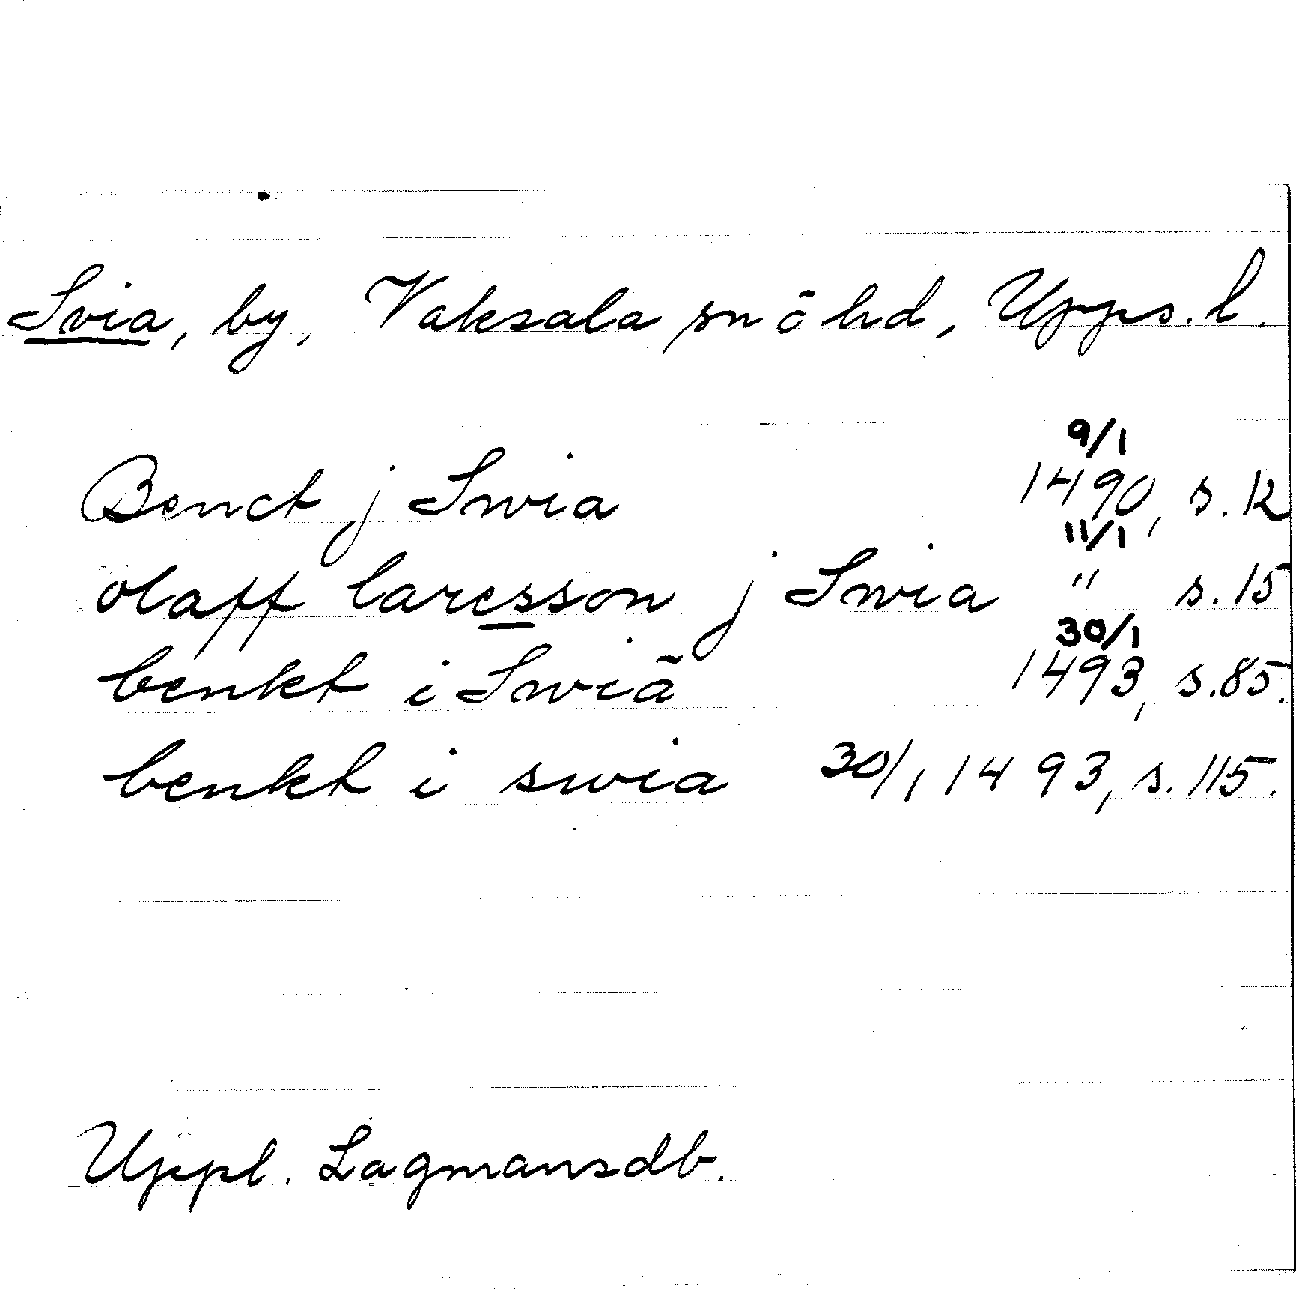 Svia, by, Vaksala sn ö hd, Upps. l.
Benct j Swia 9/1 1490, s. 12
olaff laresson j Swia 11/1 " s. 15
benkt i Swiã 30/1 1493, s. 85.
benkt i swia 30/1 1493, s. 115.
Uppl. Lagmansdb.